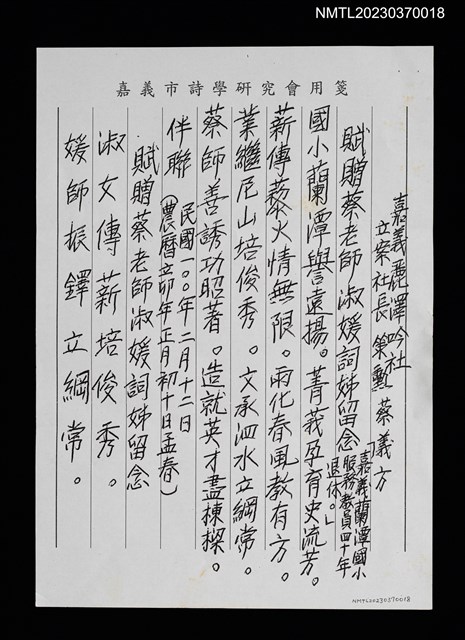 NMTL20230370018
嘉義市詩學研究會用箋
嘉義麗澤吟社
立案社長 策勳 蔡義方
賦贈蔡老師淑媛詞姊留念「嘉義蘭潭國小服務教員四十年退休。」
國小蘭潭譽遠揚。菁莪孕育史流芳。
薪傳藜火情無限。雨化春風教有方。
業繼尼山培俊秀。文承泗水立綱常。
蔡師善誘功昭著。造就英才盡棟樑。
伴聯 民國一〇〇年二月十二日
(農曆辛卯年正月初十日孟春)
賦贈蔡老師淑媛詞姊留念
淑女傳薪培俊秀。
媛師振鐸立綱常。
NMTL20230370018